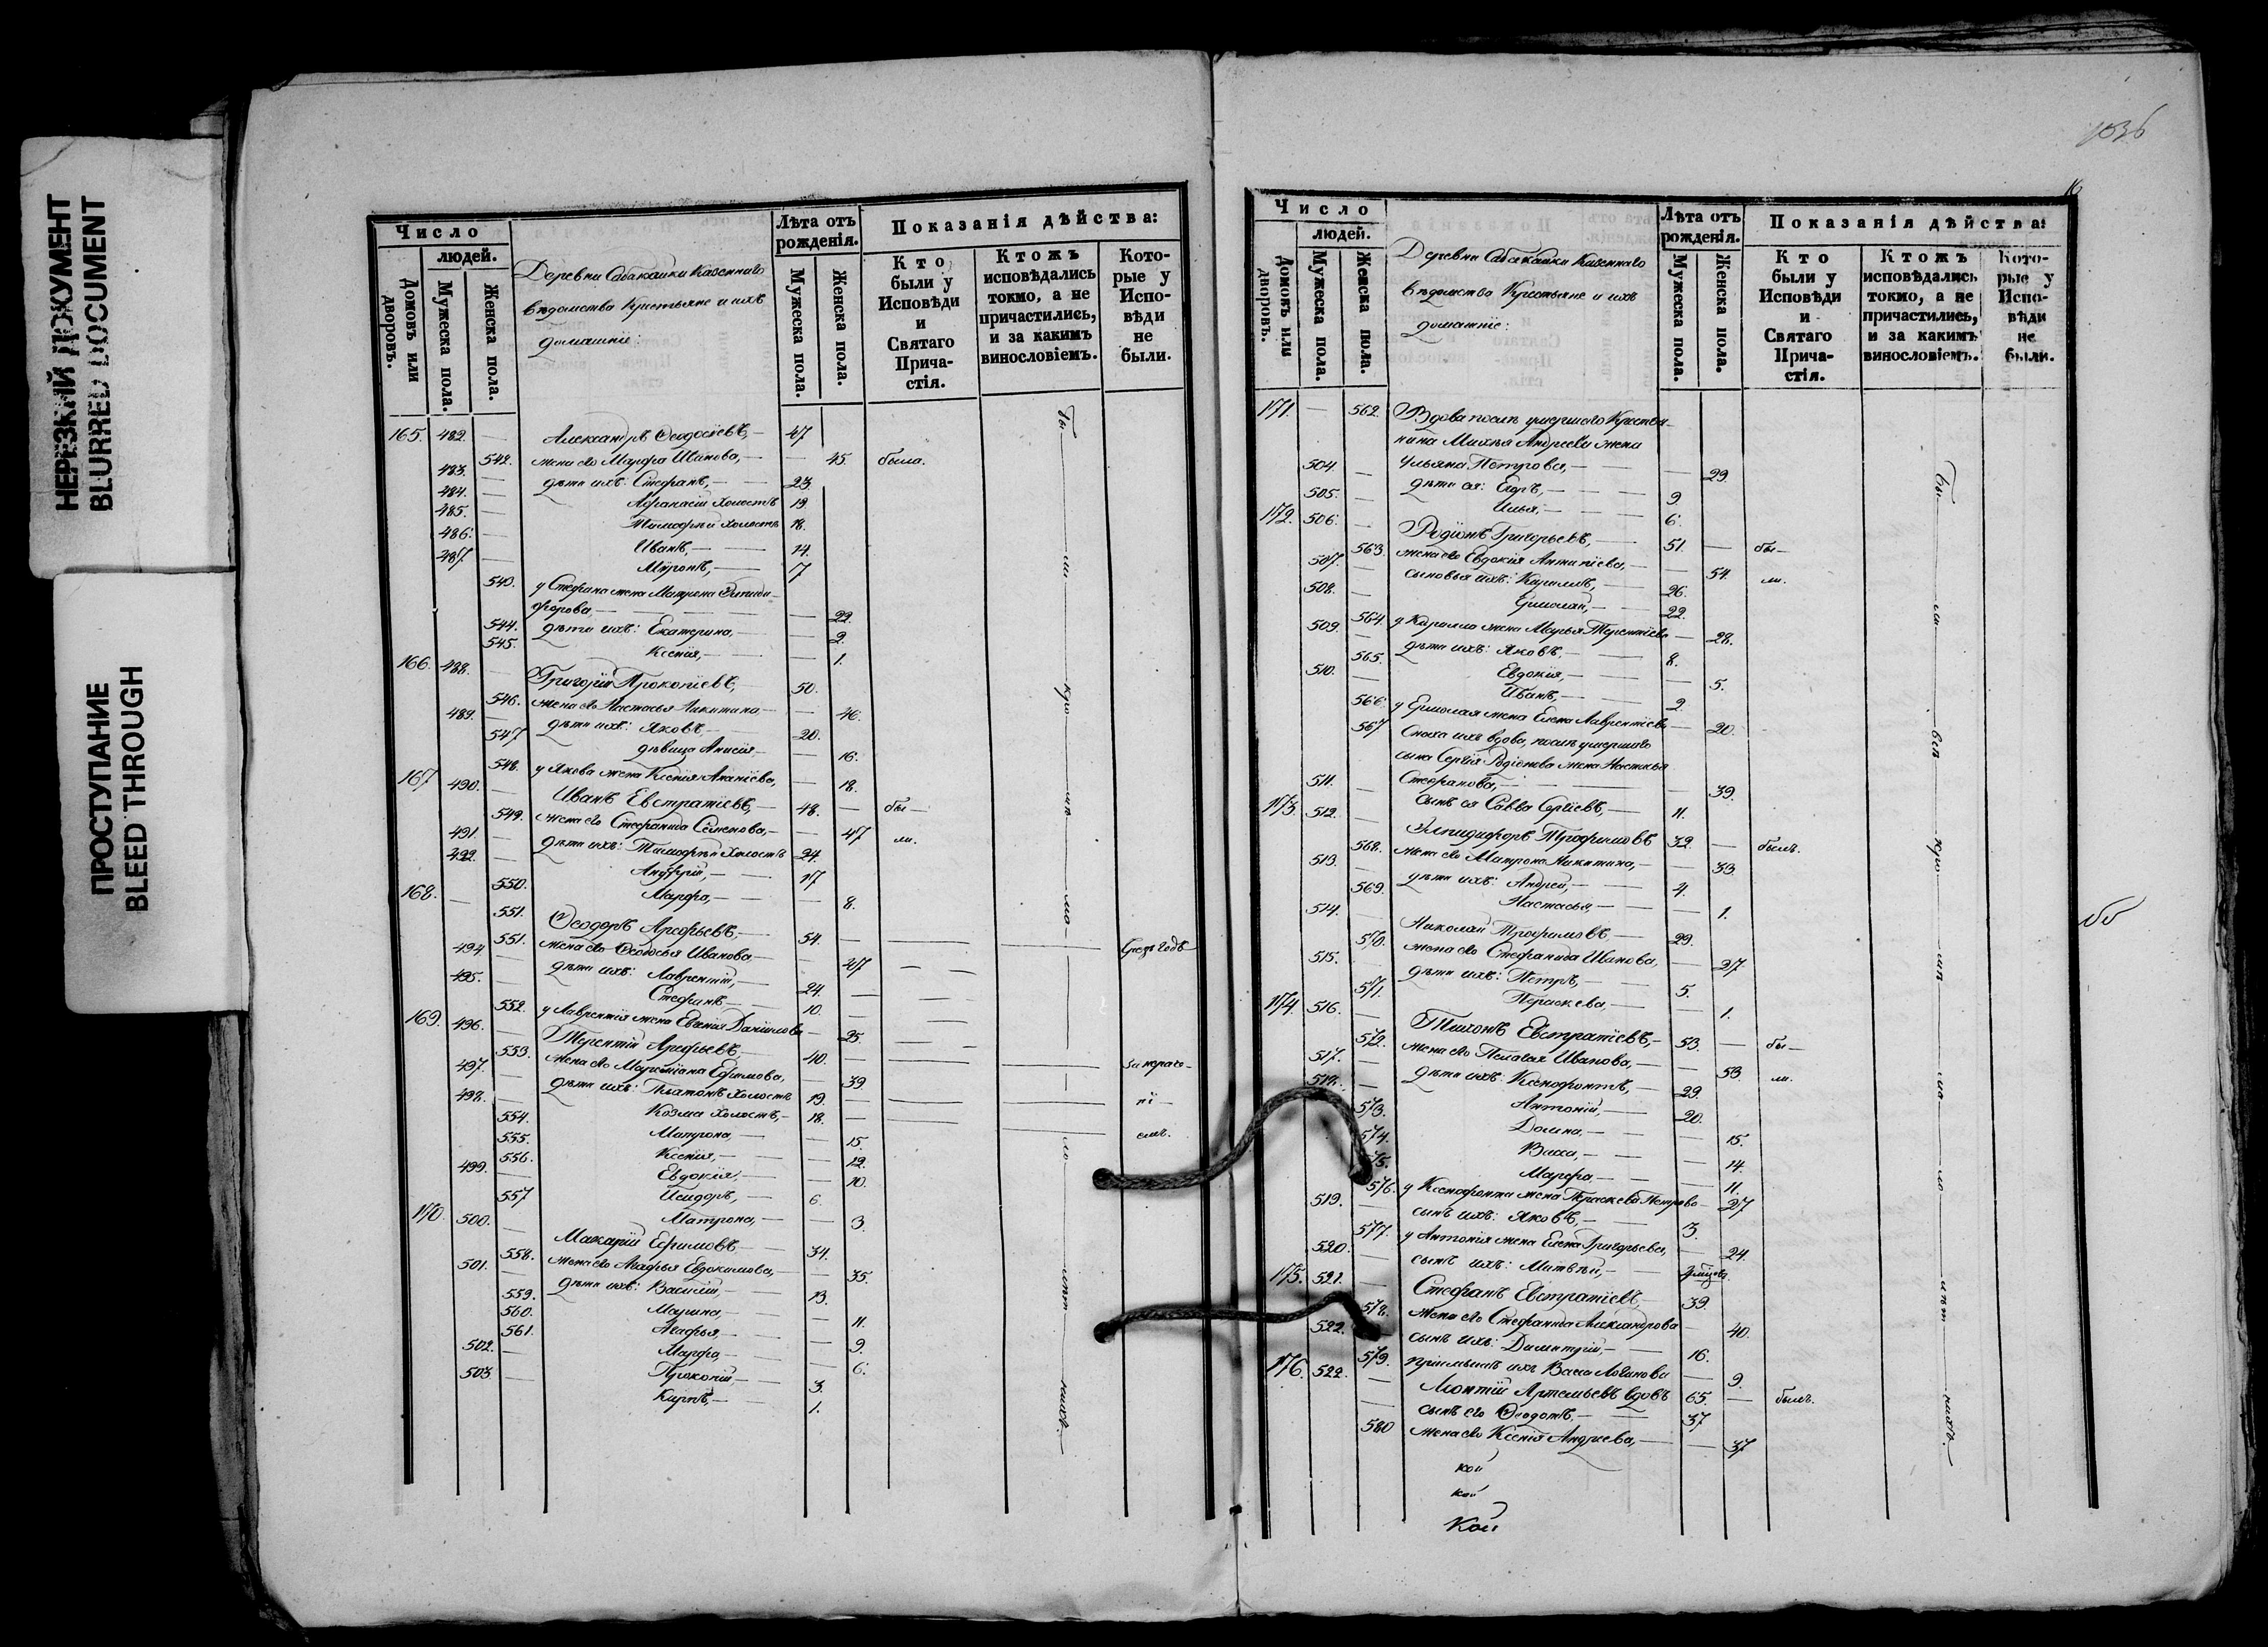 НЕРЕЗКИЙ ДОКУМЕНТ
BLURRED DOCUMENT
ПРОСТУПАНИЕ
BLEED THROUGH
Число
людей.
Домовъ или дворовъ.
Мужеска пола.
Женска пола.
Деревни Сабакайки Казеннаго
вѣдомства Крестьяне и ихъ
домашніе:
Лѣта отъ рожденія.
Мужеска пола.
Женска пола.
Показанія дѣйства:
Кто были у Исповѣди и Святаго Прича-стія.
Ктожъ исповѣдались токмо, а не причастились, и за какимъ винословіемъ.
Кото-рые у Испо-вѣди не были.
165. 482. — Александръ Ѳеодосіевъ, — 47
542. жена его Марфа Иванова, — — 45. была.
483. — дѣти ихъ: Стефанъ, — 23.
484. — Афанасій холостъ 19.
485. — Тимофей холостъ 18.
486. — Иванъ, — 14.
487. — Миронъ, — 7
543. у Стефана жена Матрона Елпиди-
форова, — — 22.
544. дѣти ихъ: Екатерина, — — 2.
545. Ксенія, — — 1.
166. 488. — Григорій Прокопіевъ, 50.
546. жена его Настасья Никитина — — 46.
489. — дѣти ихъ: Яковъ, — 20.
547 дѣвица Анисія — — 16.
548. у Якова жена Ксенія Ананіева, — 18.
167 490. — Иванъ Евстратіевъ, — 48. — бы—
549. жена его Стефанида Семенова, — — 47 ли.
491. — дѣти ихъ: Тимофей холостъ 24.
492. — Андрей, — 17
550. Марфа, — — 8.
168. — Ѳеодоръ Арефьевъ, — 54. —
551. жена его Ѳеодосья Иванова — 47
494. — дѣти ихъ: Лаврентій, — 24.
495. — Стефанъ — 10.
552. у Лаврентія жена Евгенія Данилова — 25.
169. 496. — Терентій Арефьевъ 40.
553. жена его Мариміана Ефимова, — 39.
497. — дѣти ихъ: Платонъ холостъ 19.
498. — Козма холостъ, — 18.
554. Матрона, — — 15.
555. Ксенія, — — 12.
556. Евдокія, — — 10.
499. — Исидоръ, — 6.
557 Матрона, — — 3.
170. 500. — Макарій Ефимовъ — 34.
558. жена его Агафья Евдокимова, — — 35.
501. — дѣти ихъ: Василій, — 13.
559. Марина, — — 11.
560. Агафья, — — 9.
561. Марфа, — — 6.
502. — Прокопій, — 3.
503 — Карпъ, — 1.
1836
Число
людей.
Домовъ или дворовъ.
Мужеска пола.
Женска пола.
Деревни Сабакайки Казеннаго
вѣдомства Крестьяне и ихъ
домашніе:
Лѣта отъ рожденія.
Мужеска пола.
Женска пола.
Показанія дѣйства:
Кто были у Исповѣди и Святаго Прича-стія.
Ктожъ исповѣдались токмо, а не причастились, и за какимъ винословіемъ.
Кото-рые у Испо-вѣди не были.
171. — 562. Вдова послѣ умершаго Крестья-
нина Михея Андреева жена
Ульяна Петрова, — — 29.
504 — дѣти ея: Егоръ, — 9
505. — Илья, — 6.
172. 506. — Родіонъ Григорьевъ, — 51. — бы—
563. жена его Евдокія Антипіева, — — 54. ли.
507. — сыновья ихъ: Кириллъ, — 26.
508. — Ермолай, — 22.
564. у Кирилла жена Марья Терентіева — 28.
509. — дѣти ихъ: Яковъ, — 8.
565. Евдокія, — — 5.
510. — Иванъ, — 2
566. у Ермолая жена Елена Лаврентіева — 20.
567 Сноха ихъ вдова, послѣ умершаго
сына Сергія Родіонова жена Настасья
Стефанова, — — 39.
511. — сынъ ея Савва Сергіевъ, — 11.
173. 512. — Елпидифоръ Трофимовъ 32. — былъ.
568. жена его Матрона Никитина, — — 33.
513. — дѣти ихъ: Андрей, — 4.
569. Настасья, — — 1.
514. — Николай Трофимовъ — 29.
570. жена его Стефанида Иванова, — 27.
515. — дѣти ихъ: Петръ, — 5.
571. Параскева, — — 1.
174. 516. — Тихонъ Евстратіевъ, — 53. — бы—
572. жена его Пелагея Иванова, — — 53. ли.
517. — дѣти ихъ: Ксенофонтъ, — 29.
518. — Антоній, — 20.
573. Домна, — — 15.
574. Васса, — — 14.
575. Марфа, — — 11.
576. у Ксенофонта жена Параскева Петрова — 27
519. — сынъ ихъ: Яковъ, — 3.
577. у Антонія жена Елена Григорьева, — 24.
520. — сынъ ихъ: Матвѣй, —
175. 521. — Стефанъ Евстратіевъ 39.
578. жена его Стефанида Александрова — 40.
522. — сынъ ихъ: Димитрій, — 16.
579. пріемышъ ихъ Васса Логинова — 9.
176. 522. — Леонтій Артемьевъ вдовъ 65. — былъ.
— сынъ его Ѳеодотъ, — 37
580 жена его Ксенія Андреева, — — 37.
кой
кой
Кой